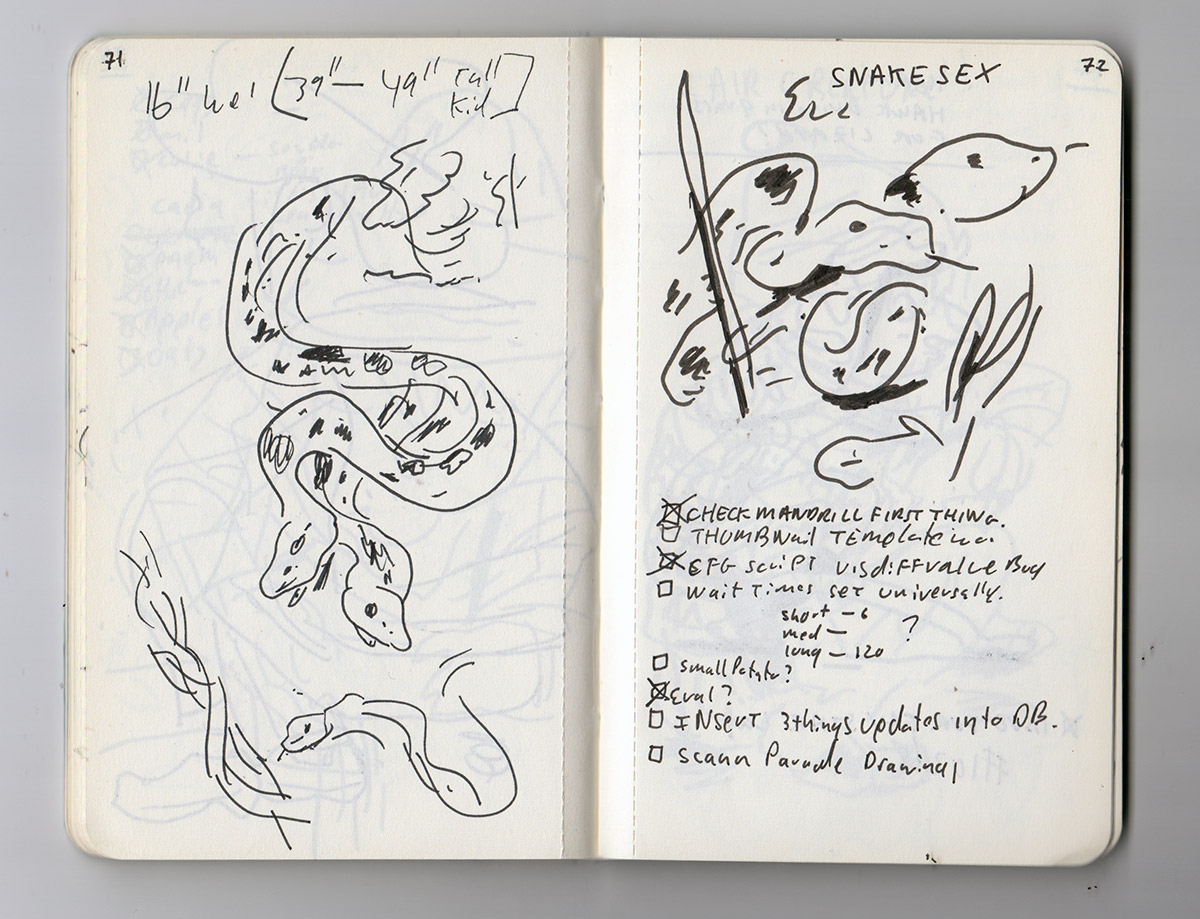 71
16" [39" — 49" Tall
Kid]
72
SNAKE SEX
CHECK MANDRILL FIRST THING.
THUMBNail Template
CFG script visdiffvalue Bug
Wait Times set universally.
short — 6
med — ?
long — 120
small Potato?
Eval?
INSerT 3things updates into DB.
Scann Parade Drawing